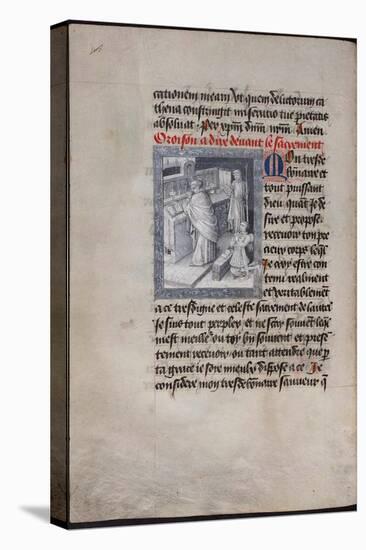 cationem meam Vt quem delictorum ca
thena constringit miseratio tue pietatis
absoluat Per xpm dnm nrm Amen
Oroison a dire deuant le sacrement
Mon tres de
bonaire et
tout puissant
dieu quant Je de
sire et propose
receuoir ton pre
cieux corps leql
Je croy estre con
tenu realment
et veritablement
a ce tres digne et celeste sacrement de lautel
Je suis tout perplex et ne scay souuent leql
mest meilleur ou toy bn souuent et pres
tement receuoir ou tant attendre que p
ta grace ie soie mieulx dispose a ce Je
considere mon tres debonaire sauueur q